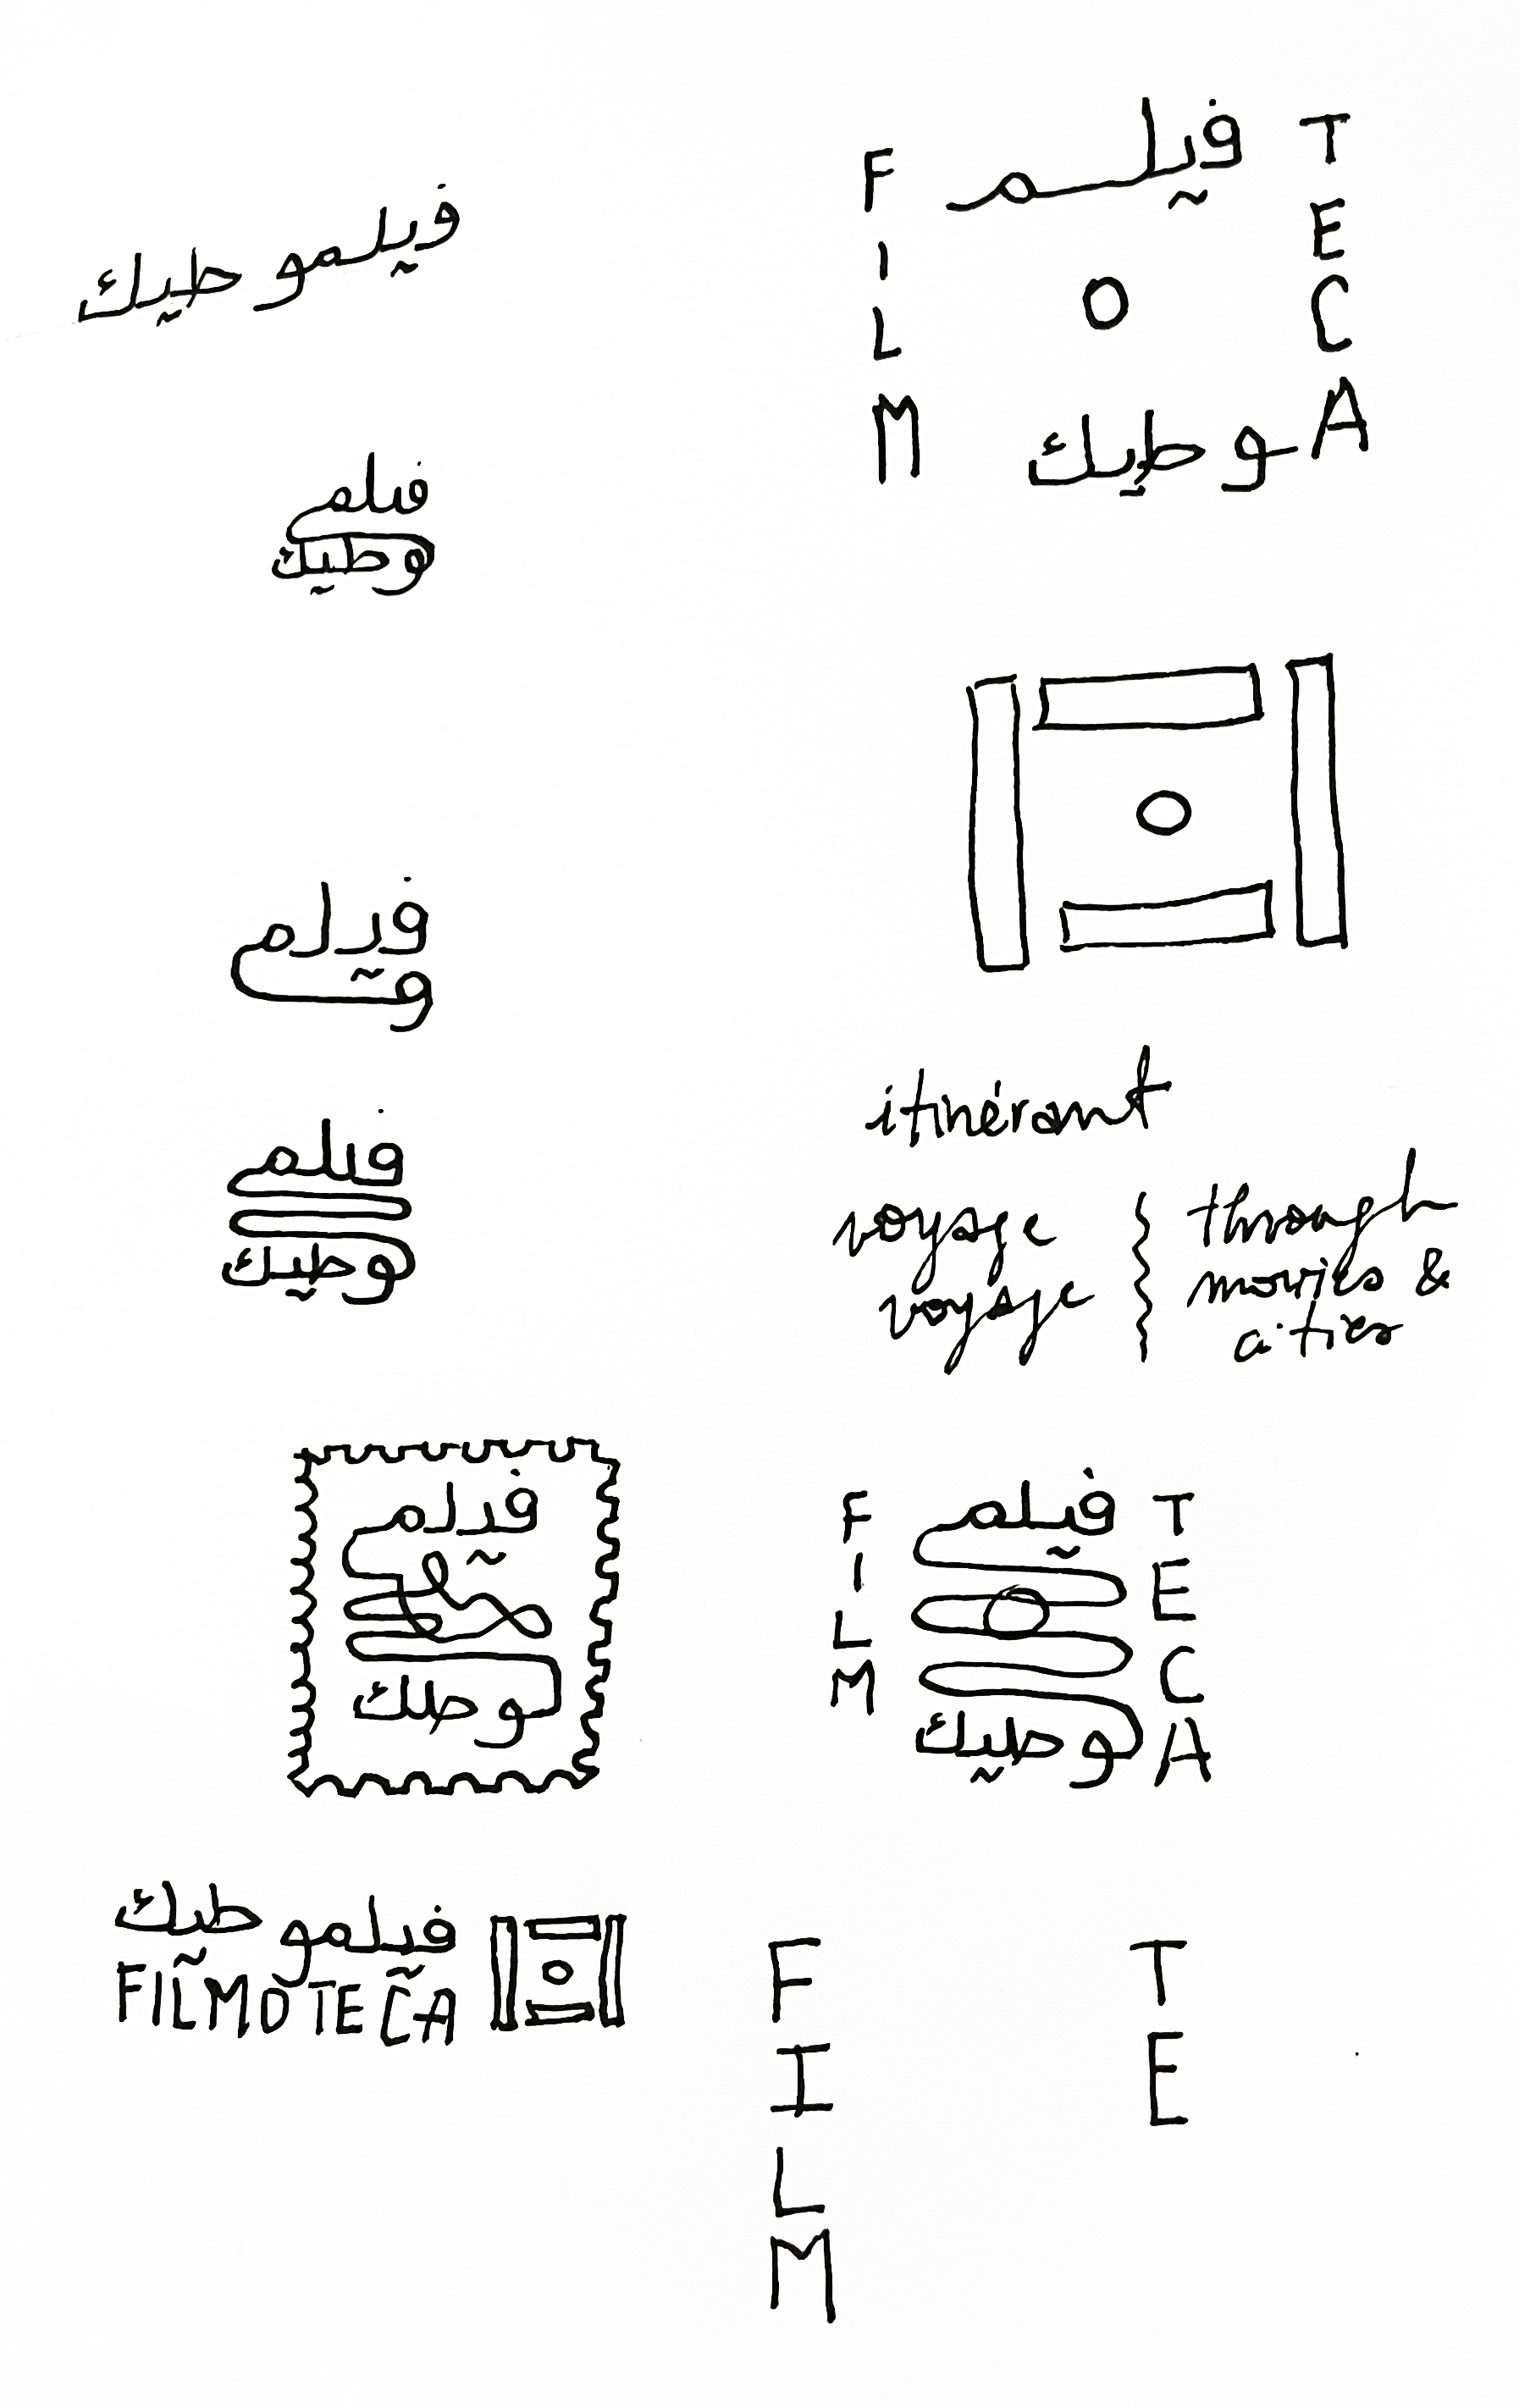 فيلموطيك
F
I
L
M
فيلم
O
وطيك
T
E
C
A
فيلم
وطيك
فيلم
و
itinérant
voyage
voyage
through
movies &
cities
فيلم
وطيك
فيلم
وطيك
F
I
L
M
فيلم
وطيك
T
E
C
A
فيلموطيك
FILMOTECA
F
I
L
M
T
E